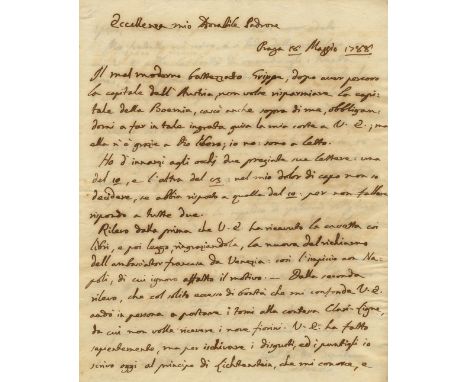 Eccellenza mio Adorabile Padrone
Praga 16 Maggio 1788
Il mal moderno battezzato Grippe, dopo aver percorso
la capitale dell'Austria, non volle risparmiare la capi-
tale della Boemia, cascò anche sopra di me, obbligan-
domi a far in tale ingrata guisa la mia corte a V. E.; ma
ella n'è grazie a Dio libera; io no: sono a letto.
Ho d'innanzi agli occhj due pregiate sue lettere: una
del 10, e l'altra del 13: nel mio dolor di capo non so
decidere, se abbia risposto a quella del 10: per non fallare
rispondo a tutte due.
Rilevo dalla prima che V. E. ha ricevuto la cassetta coi
libri, e poi leggo, ringraziandola, la nuova del richiamo
dell'ambasciator francese da Venezia: così l'impicio con Na-
poli, di cui ignoro affatto il motivo. — Dalla seconda
rilevo, che col solito eccesso di bontà che mi confonde V. E.
andò in persona a portare i tomi alla contessa Clari-Ligne,
da cui non volle ricevere i nove fiorini. V. E. ha fatto
sapientemente, ma per ischivare i disgusti, ed i puntigli io
scrivo oggi al principe di Lichtenstein, che mi conosce, e